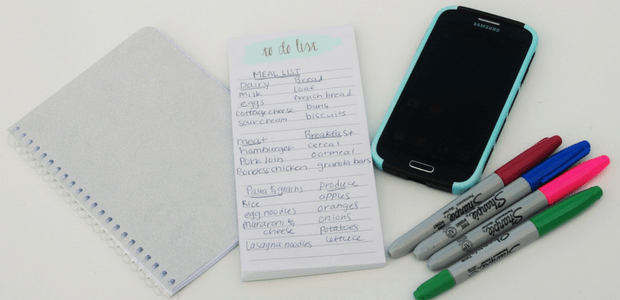 to do list
MEAL LIST
Dairy Bread
milk loaf
eggs french bread
cottage cheese buns
sour cream biscuits
meat Breakfast
hamburger cereal
Pork loin oatmeal
Boneless chicken granola bars
Pasta & grains produce
Rice apples
egg noodles oranges
Macaroni & onions
cheese Potatoes
Lasagna noodles lettuce
SAMSUNG
Sharpie
Sharpie
Sharpie